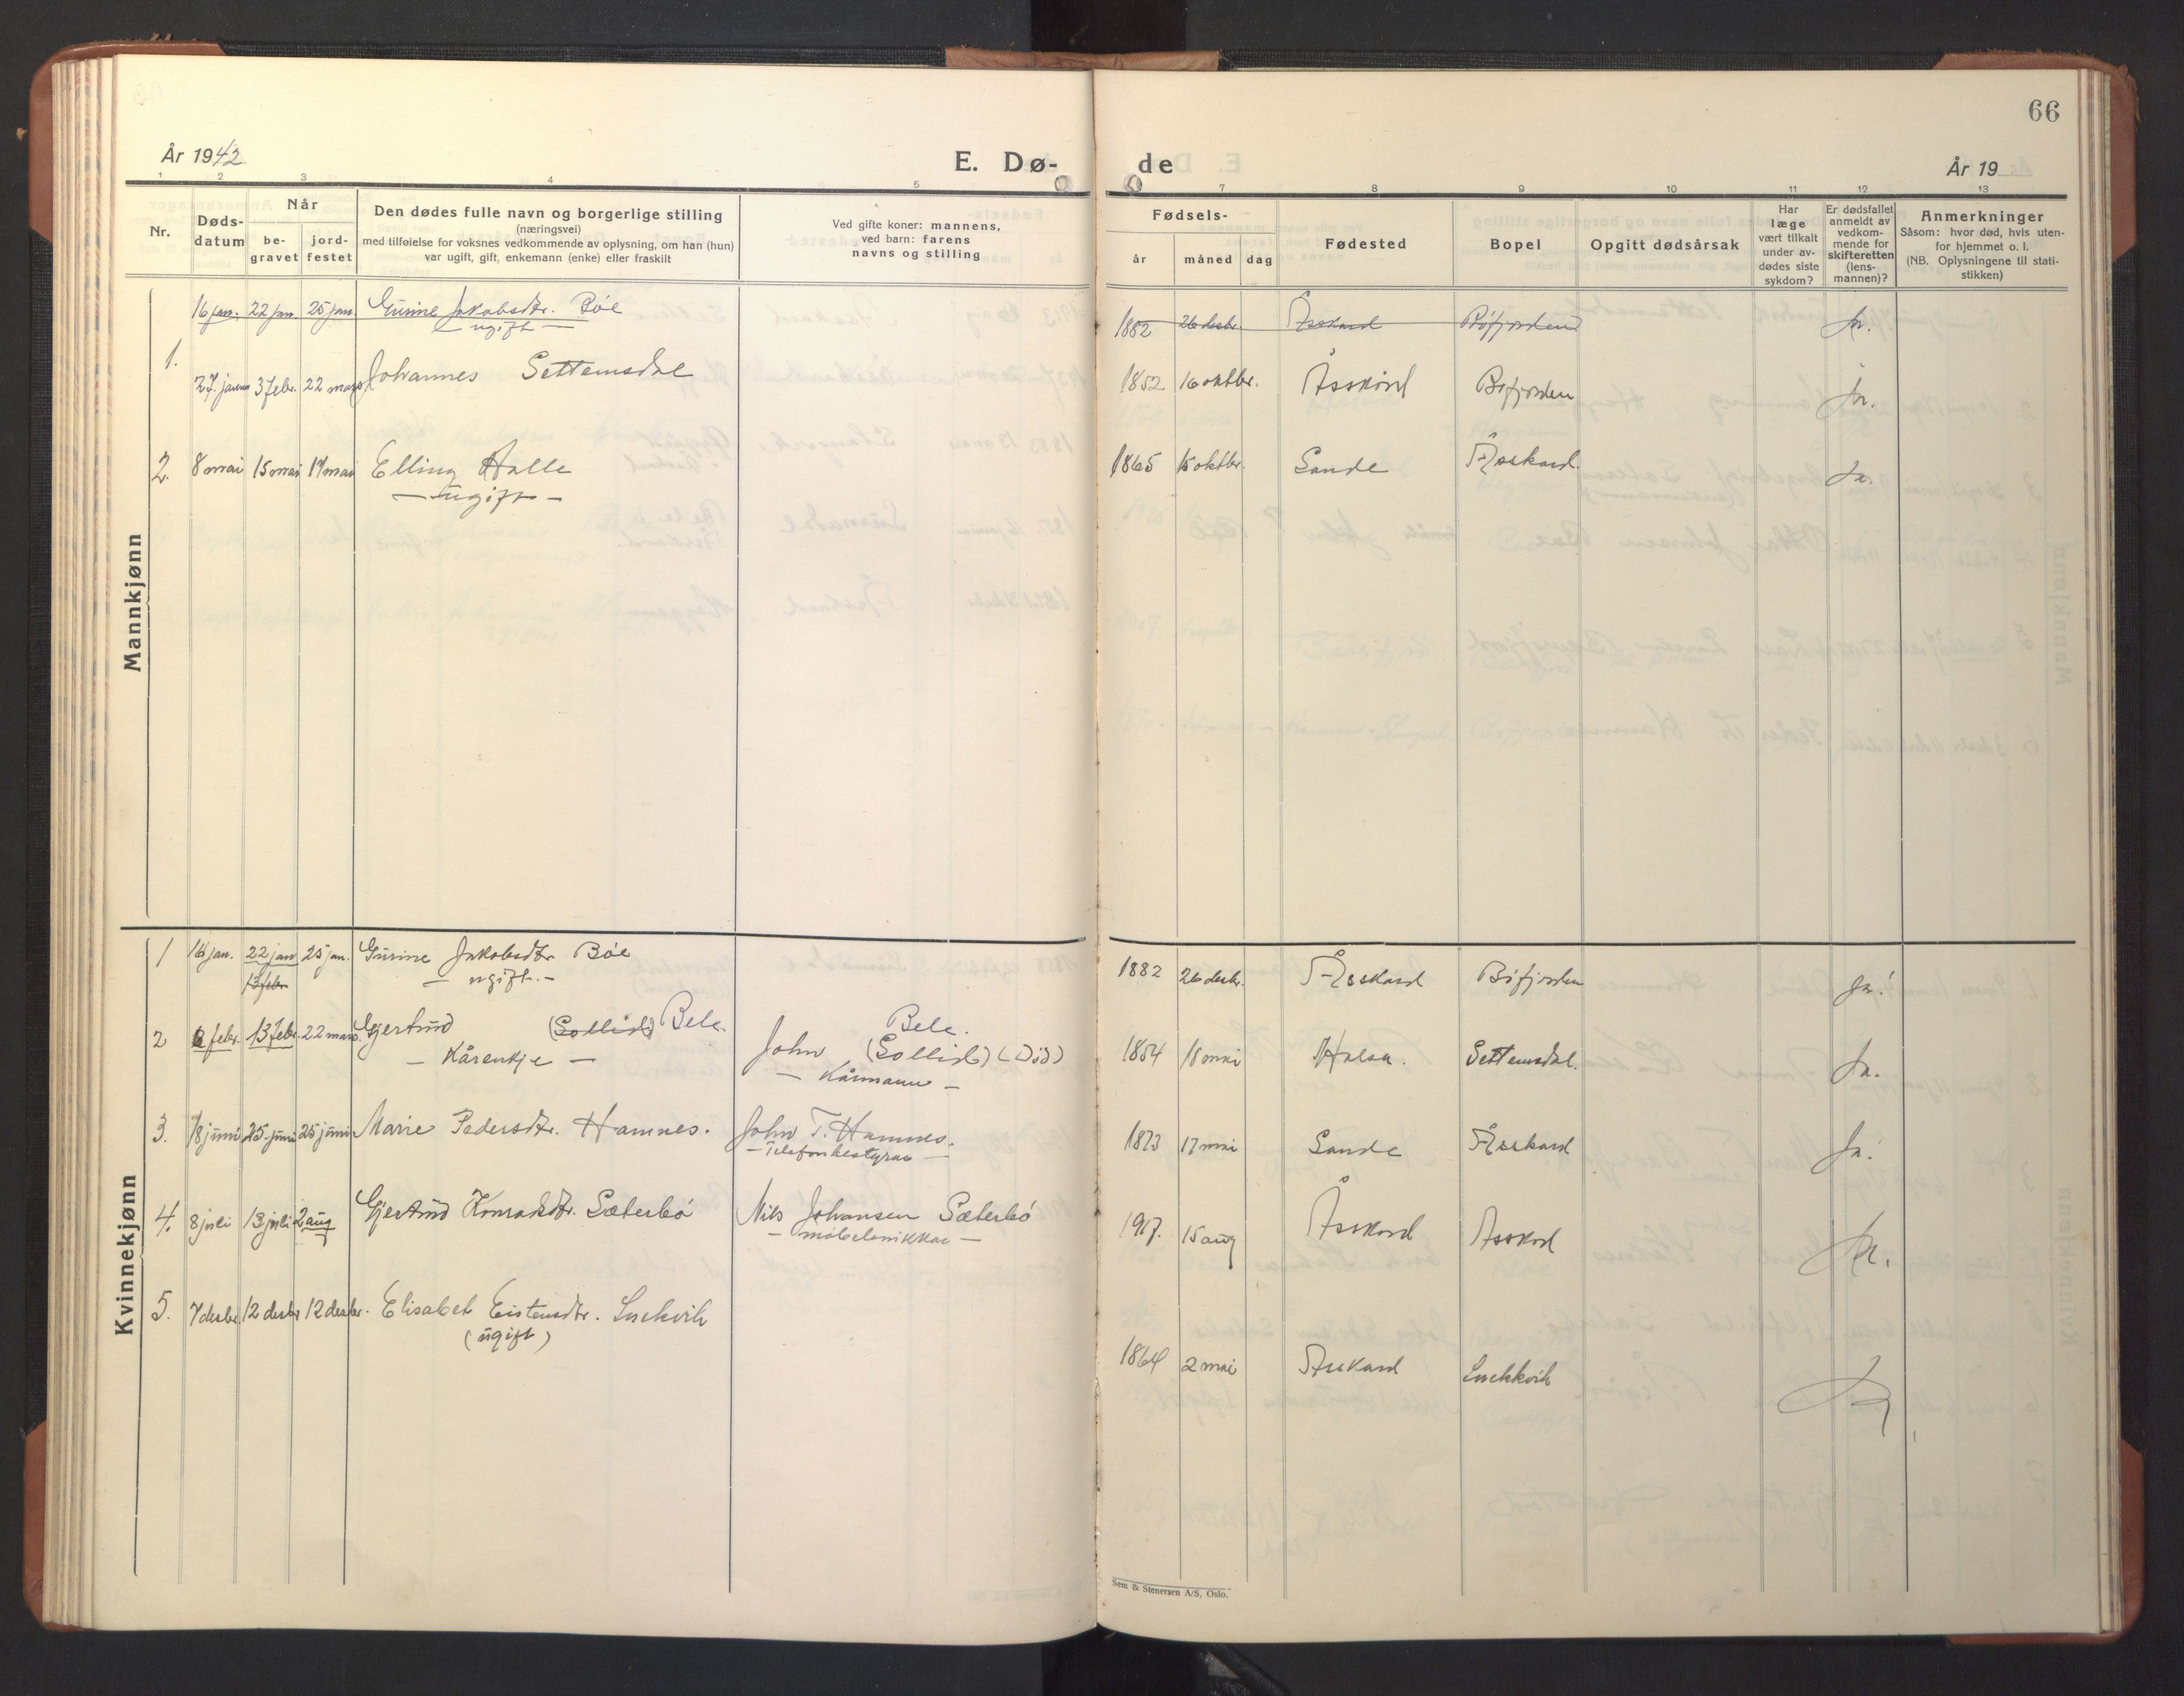 66
År 1942
E. Dø-
de
År 19
1 2 3 4 5
7 8 9 10 11 12 13
Nr.
Døds-
datum
Når
be-
gravet
jord-
festet
Den dødes fulle navn og borgerlige stilling
(næringsvei)
med tilføielse for voksnes vedkommende av oplysning, om han (hun)
var ugift, gift, enkemann (enke) eller fraskilt
Ved gifte koner: mannens,
ved barn: farens
navns og stilling
Fødsels-
år måned dag
Fødested
Bopel
Opgitt dødsårsak
Har
læge
vært tilkalt
under av-
dødes siste
sykdom?
Er dødsfallet
anmeldt av
vedkom-
mende for
skifteretten
(lens-
mannen)?
Anmerkninger
Såsom: hvor død, hvis uten-
for hjemmet o. l.
(NB. Oplysningene til stati-
stikken)
Mannkjønn
16 jan. 22 jan. 25 jan. Gurine Jakobsdtr. Bøe 1882 26 desbr. Åsskard Bøfjorden Ja.
ugift
1. 27. januar 3 febr. 22 mars Johannes Settemsdal 1852 16 oktbr. Åsskard Bøfjorden Ja.
2. 8 mai 15 mai 17 mai Elling Halle 1865 15 oktbr. Sande Åsskard. Ja.
— ugift —
Kvinnekjønn
1 16 jan. 22 jan 25 jan. Gurine Jakobsdtr Bøe 1882 26 desbr. Åsskard Bøfjorden Ja.
13 febr — ugift. —
2 6 febr. 13 febr. 22 mars. Gjertrud (Sollid) Bele. Bele.
John (Sollid) (død) 1854 18 mai Halsa. Settemsdal. Ja.
— Kårenkje — — Kårmann —
3. 18 juni 25. juni 25 juni Marie Pedersdtr. Hamnes. John T. Hamnes. 1873 17 mai Sande Åsskard Ja.
— Telefonbestyrar —
4. 8 juli 13 juli 2 aug Gjertrud Konradsdtr. Sæterbø Nils Johansen Sæterbø 1917. 15 aug Åsskard Åsskard Ja.
— møbelsnikkar —
5. 7 desbr. 12 desbr 12 desbr. Elisabet Eistensdtr. 1864 2 mai Åsskard Ja
(ugift)
Sem & Stenersen A/S, Oslo.